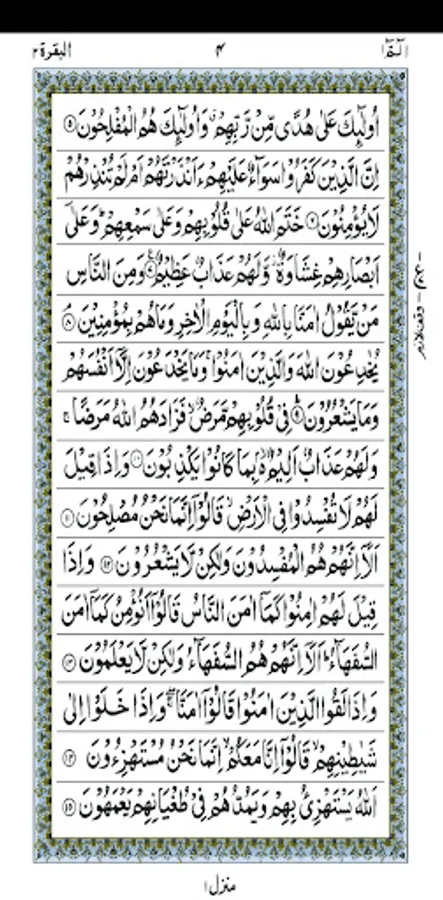 الٓمّٓ ۱
۴
البقرة ۲
اُولٰٓئِكَ عَلٰى هُدًى مِّنْ رَّبِّهِمْ ۙ وَاُولٰٓئِكَ هُمُ الْمُفْلِحُوْنَ ۝۵
اِنَّ الَّذِيْنَ كَفَرُوْا سَوَآءٌ عَلَيْهِمْ ءَاَنْذَرْتَهُمْ اَمْ لَمْ تُنْذِرْهُمْ
لَا يُؤْمِنُوْنَ ۝۶ خَتَمَ اللّٰهُ عَلٰى قُلُوْبِهِمْ وَعَلٰى سَمْعِهِمْ ؕ وَعَلٰٓى
اَبْصَارِهِمْ غِشَاوَةٌ ۫ وَّلَهُمْ عَذَابٌ عَظِيْمٌ ۝۷ وَمِنَ النَّاسِ
مَنْ يَّقُوْلُ اٰمَنَّا بِاللّٰهِ وَبِالْيَوْمِ الْاٰخِرِ وَمَا هُمْ بِمُؤْمِنِيْنَ ۝۸
يُخٰدِعُوْنَ اللّٰهَ وَالَّذِيْنَ اٰمَنُوْا ۚ وَمَا يَخْدَعُوْنَ اِلَّآ اَنْفُسَهُمْ
وَمَا يَشْعُرُوْنَ ۝۹ فِيْ قُلُوْبِهِمْ مَّرَضٌ ۙ فَزَادَهُمُ اللّٰهُ مَرَضًا ۚ
وَلَهُمْ عَذَابٌ اَلِيْمٌ ۢ ۙ بِمَا كَانُوْا يَكْذِبُوْنَ ۝۱۰ وَاِذَا قِيْلَ
لَهُمْ لَا تُفْسِدُوْا فِى الْاَرْضِ ۙ قَالُوْٓا اِنَّمَا نَحْنُ مُصْلِحُوْنَ ۝۱۱
اَلَآ اِنَّهُمْ هُمُ الْمُفْسِدُوْنَ وَلٰكِنْ لَّا يَشْعُرُوْنَ ۝۱۲ وَاِذَا
قِيْلَ لَهُمْ اٰمِنُوْا كَمَآ اٰمَنَ النَّاسُ قَالُوْٓا اَنُؤْمِنُ كَمَآ اٰمَنَ
السُّفَهَآءُ ؕ اَلَآ اِنَّهُمْ هُمُ السُّفَهَآءُ وَلٰكِنْ لَّا يَعْلَمُوْنَ ۝۱۳
وَاِذَا لَقُوا الَّذِيْنَ اٰمَنُوْا قَالُوْٓا اٰمَنَّا ۖۚ وَاِذَا خَلَوْا اِلٰى
شَيٰطِيْنِهِمْ ۙ قَالُوْٓا اِنَّا مَعَكُمْ ۙ اِنَّمَا نَحْنُ مُسْتَهْزِءُوْنَ ۝۱۴
اَللّٰهُ يَسْتَهْزِئُ بِهِمْ وَيَمُدُّهُمْ فِيْ طُغْيَانِهِمْ يَعْمَهُوْنَ ۝۱۵
وقف لازم
منزل ۱